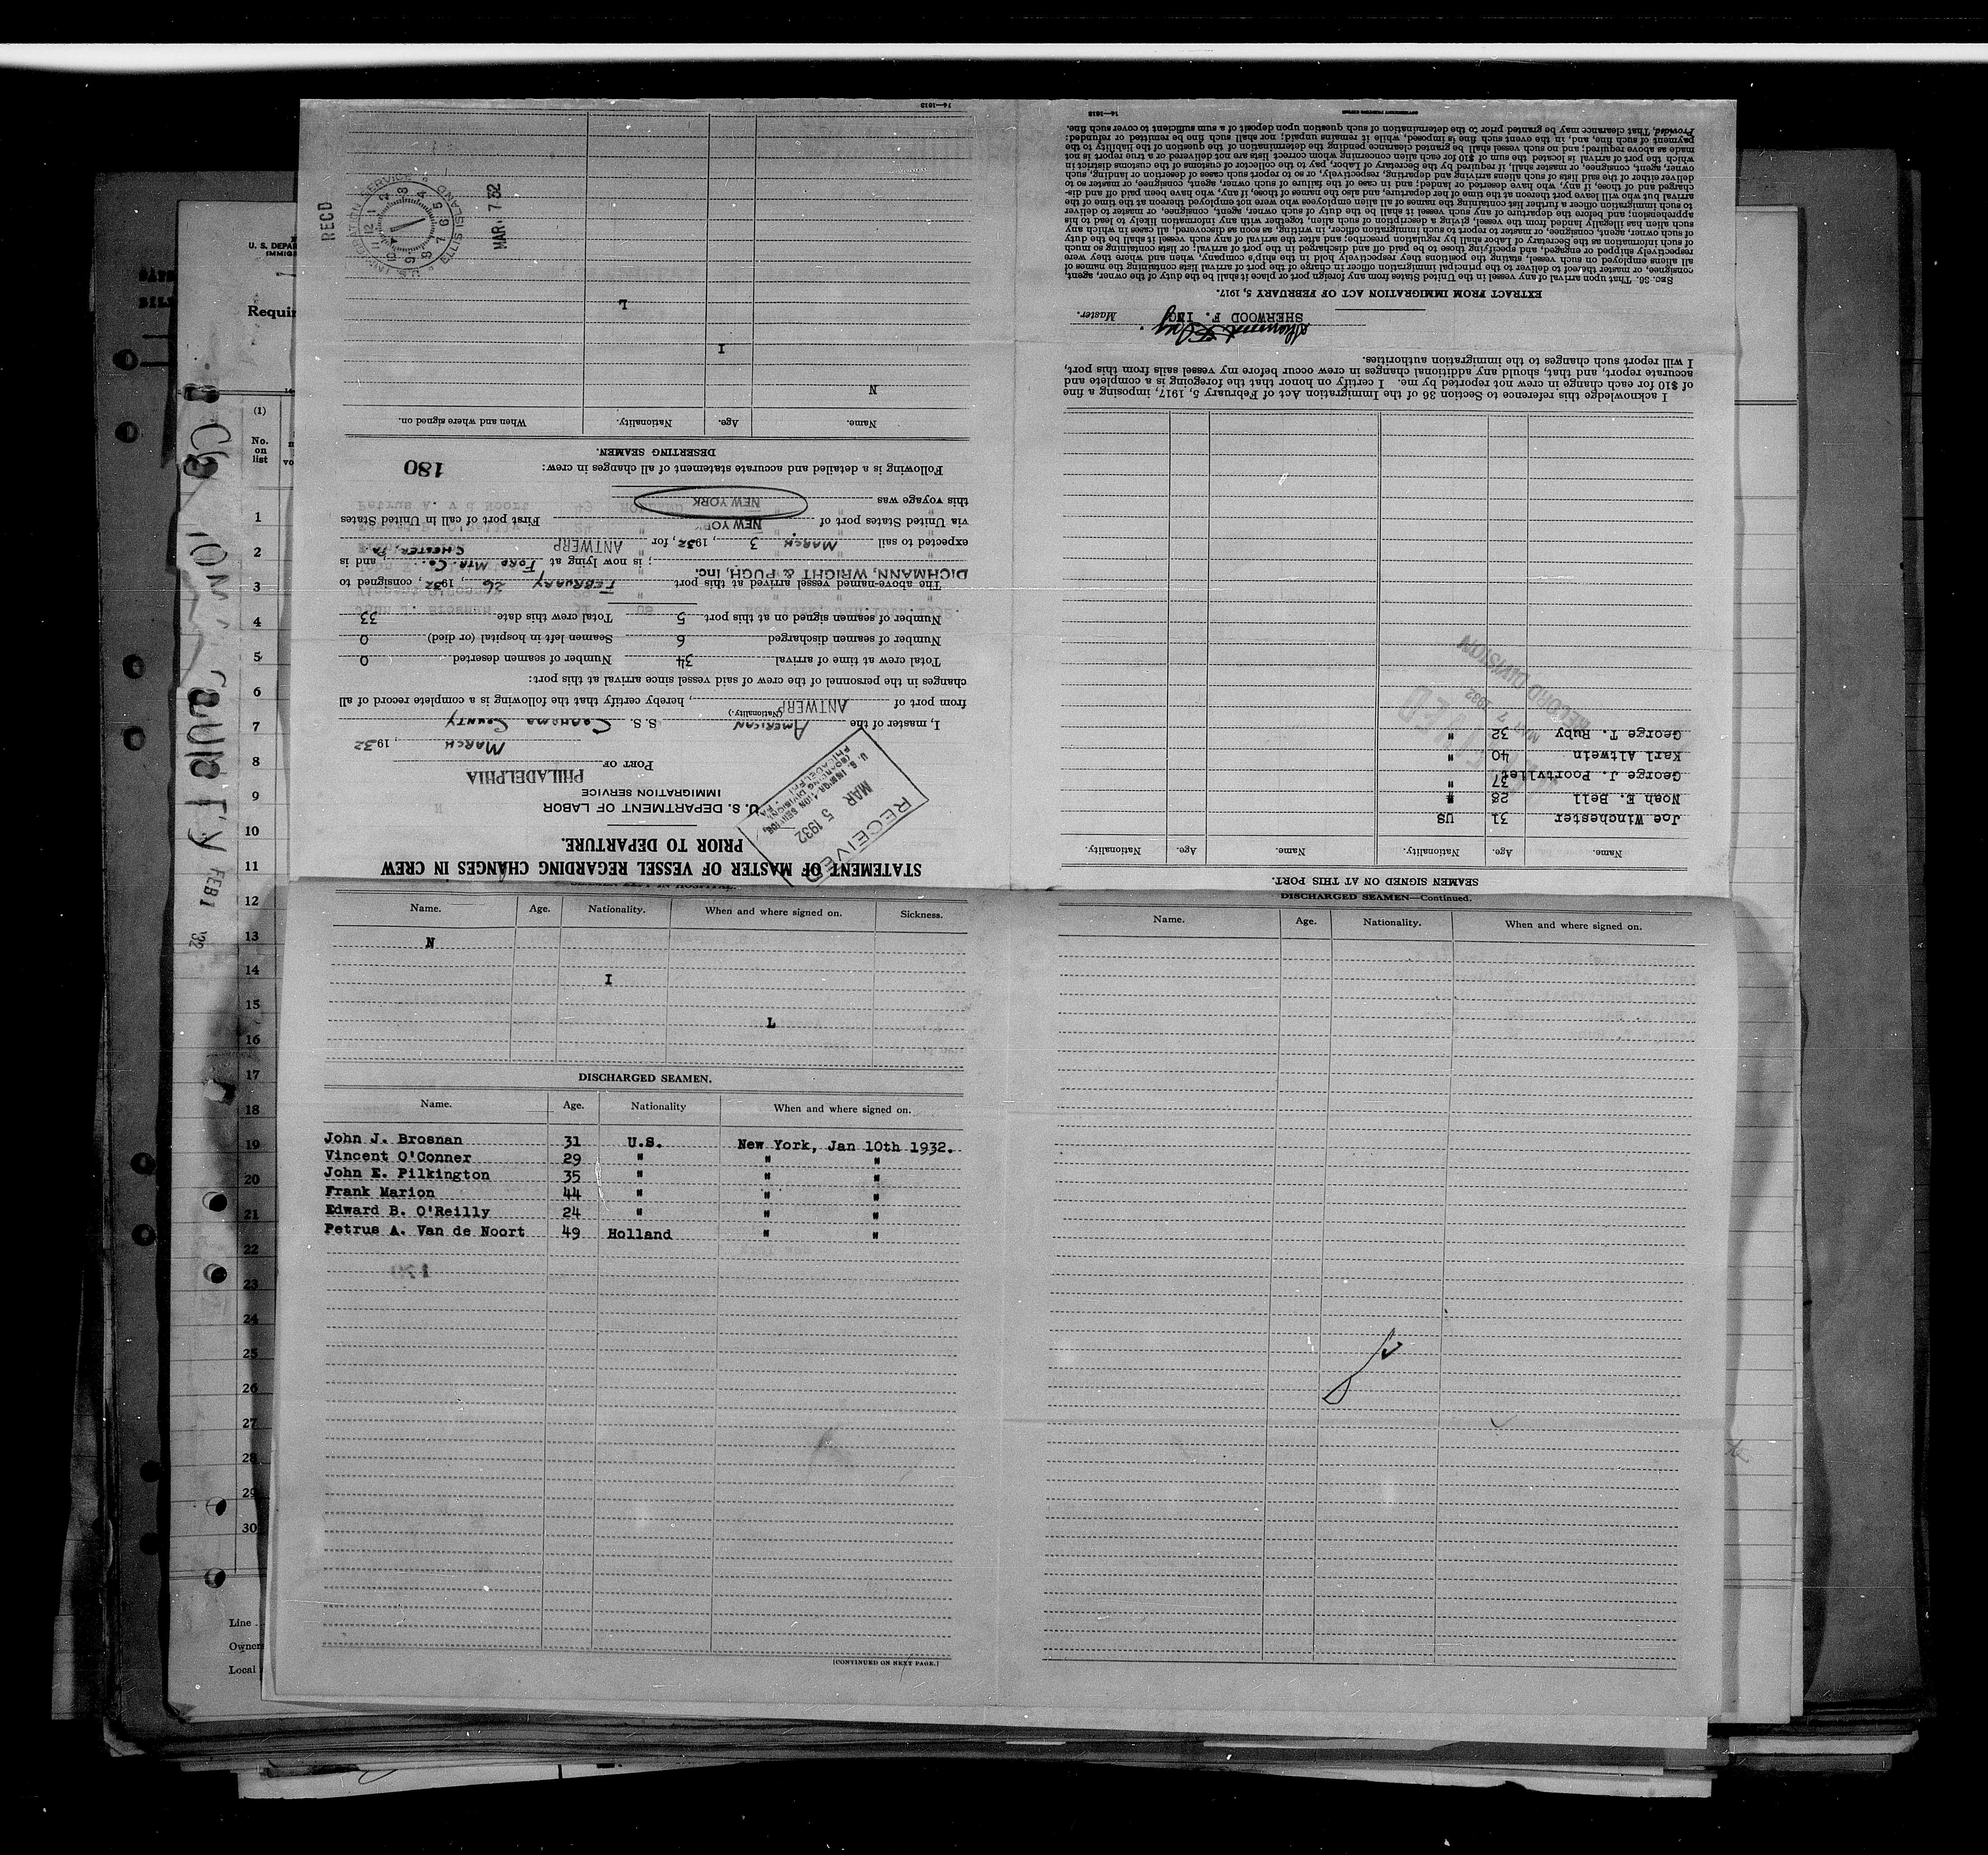 STATEMENT OF MASTER OF VESSEL REGARDING CHANGES IN CREW
PRIOR TO DEPARTURE.
U. S. DEPARTMENT OF LABOR
IMMIGRATION SERVICE
RECEIVED
MAR 5 1932
PORT OF PHILADELPHIA
MARCH , 1932
I, master of the AMERICAN S. S. COAHOMA COUNTY
(Nationality.)
from port of ANTWERP , hereby certify that the following is a complete record of all
changes in the personnel of the crew of said vessel since arrival at this port:
Total crew at time of arrival 34 Number of seamen deserted 0
Number of seamen discharged 6 Seamen left in hospital (or died) 0
Number of seamen signed on at this port 5 Total crew this date 33
The above-named vessel arrived at this port FEBRUARY 26, 1932, consigned to
DICHMANN, WRIGHT & PUGH, Inc. ; is now lying at FORD MTR. CO. CHESTER, PA. and is
expected to sail MARCH 3, 1932, for ANTWERP
via United States port of NEW YORK First port of call in United States
this voyage was NEW YORK
Following is a detailed and accurate statement of all changes in crew:
180
DESERTING SEAMEN.
Name. Age. Nationality. When and where signed on.
N
I
L
RECD
MAR. 7 32
14—1613
SEAMEN LEFT IN HOSPITAL.
Name. Age. Nationality. When and where signed on. Sickness.
N
I
L
DISCHARGED SEAMEN.
Name. Age. Nationality When and where signed on.
John J. Brosnan 31 U.S. New York, Jan 10th 1932.
Vincent O'Conner 29 " " "
John E. Pilkington 35 " " "
Frank Marion 44 " " "
Edward B. O'Reilly 24 " " "
Petrus A. Van de Noort 49 Holland " "
[CONTINUED ON NEXT PAGE.]
DISCHARGED SEAMEN—Continued.
Name. Age. Nationality. When and where signed on.
SEAMEN SIGNED ON AT THIS PORT.
Name. Age. Nationality. Name. Age. Nationality.
Joe Winchester 31 US
Noah E. Bell 28 "
George J. Poortvliet 37 "
Karl Altwein 40 "
George T. Ruby 32 "
MAR 7 1932
RECORD DIVISION
I acknowledge this reference to Section 36 of the Immigration Act of February 5, 1917, imposing a fine
of $10 for each change in crew not reported by me. I certify on honor that the foregoing is a complete and
accurate report, and that, should any additional changes in crew occur before my vessel sails from this port,
I will report such changes to the immigration authorities.
SHERWOOD F. ING Master.
EXTRACT FROM IMMIGRATION ACT OF FEBRUARY 5, 1917.
SEC. 36. That upon arrival of any vessel in the United States from any foreign port or place it shall be the duty of the owner, agent,
consignee, or master thereof to deliver to the principal immigration officer in charge of the port of arrival lists containing the names of
all aliens employed on such vessel, stating the positions they respectively hold in the ship's company, when and where they were
respectively shipped or engaged, and specifying those to be paid off and discharged in the port of arrival; or lists containing so much
of such information as the Secretary of Labor shall by regulation prescribe; and after the arrival of any such vessel it shall be the duty
of such owner, agent, consignee, or master to report to such immigration officer, in writing, as soon as discovered, all cases in which any
such alien has illegally landed from the vessel, giving a description of such alien, together with any information likely to lead to his
apprehension; and before the departure of any such vessel it shall be the duty of such owner, agent, consignee, or master to deliver
to such immigration officer a further list containing the names of all alien employees who were not employed thereon at the time of the
arrival but who will leave port thereon at the time of her departure, and also the names of those, if any, who have been paid off and dis-
charged and of those, if any, who have deserted or landed; and in case of the failure of such owner, agent, consignee, or master so to
deliver either of the said lists of such aliens arriving and departing, respectively, or so to report such cases of desertion or landing, such
owner, agent, consignee, or master shall, if required by the Secretary of Labor, pay to the collector of customs of the customs district in
which the port of arrival is located the sum of $10 for each alien concerning whom correct lists are not delivered or a true report is not
made as above required; and no such vessel shall be granted clearance pending the determination of the question of the liability to the
payment of such fine, and, in the event such fine is imposed, while it remains unpaid; nor shall such fine be remitted or refunded:
Provided, That clearance may be granted prior to the determination of such question upon deposit of a sum sufficient to cover such fine.
14—1613
Requir
(1)
No.
on
list
1
2
3
4
5
6
7
8
9
10
11
12
13
14
15
16
17
18
19
20
21
22
23
24
25
26
27
28
29
30
Line
Owner
Local
FEB 1 '32